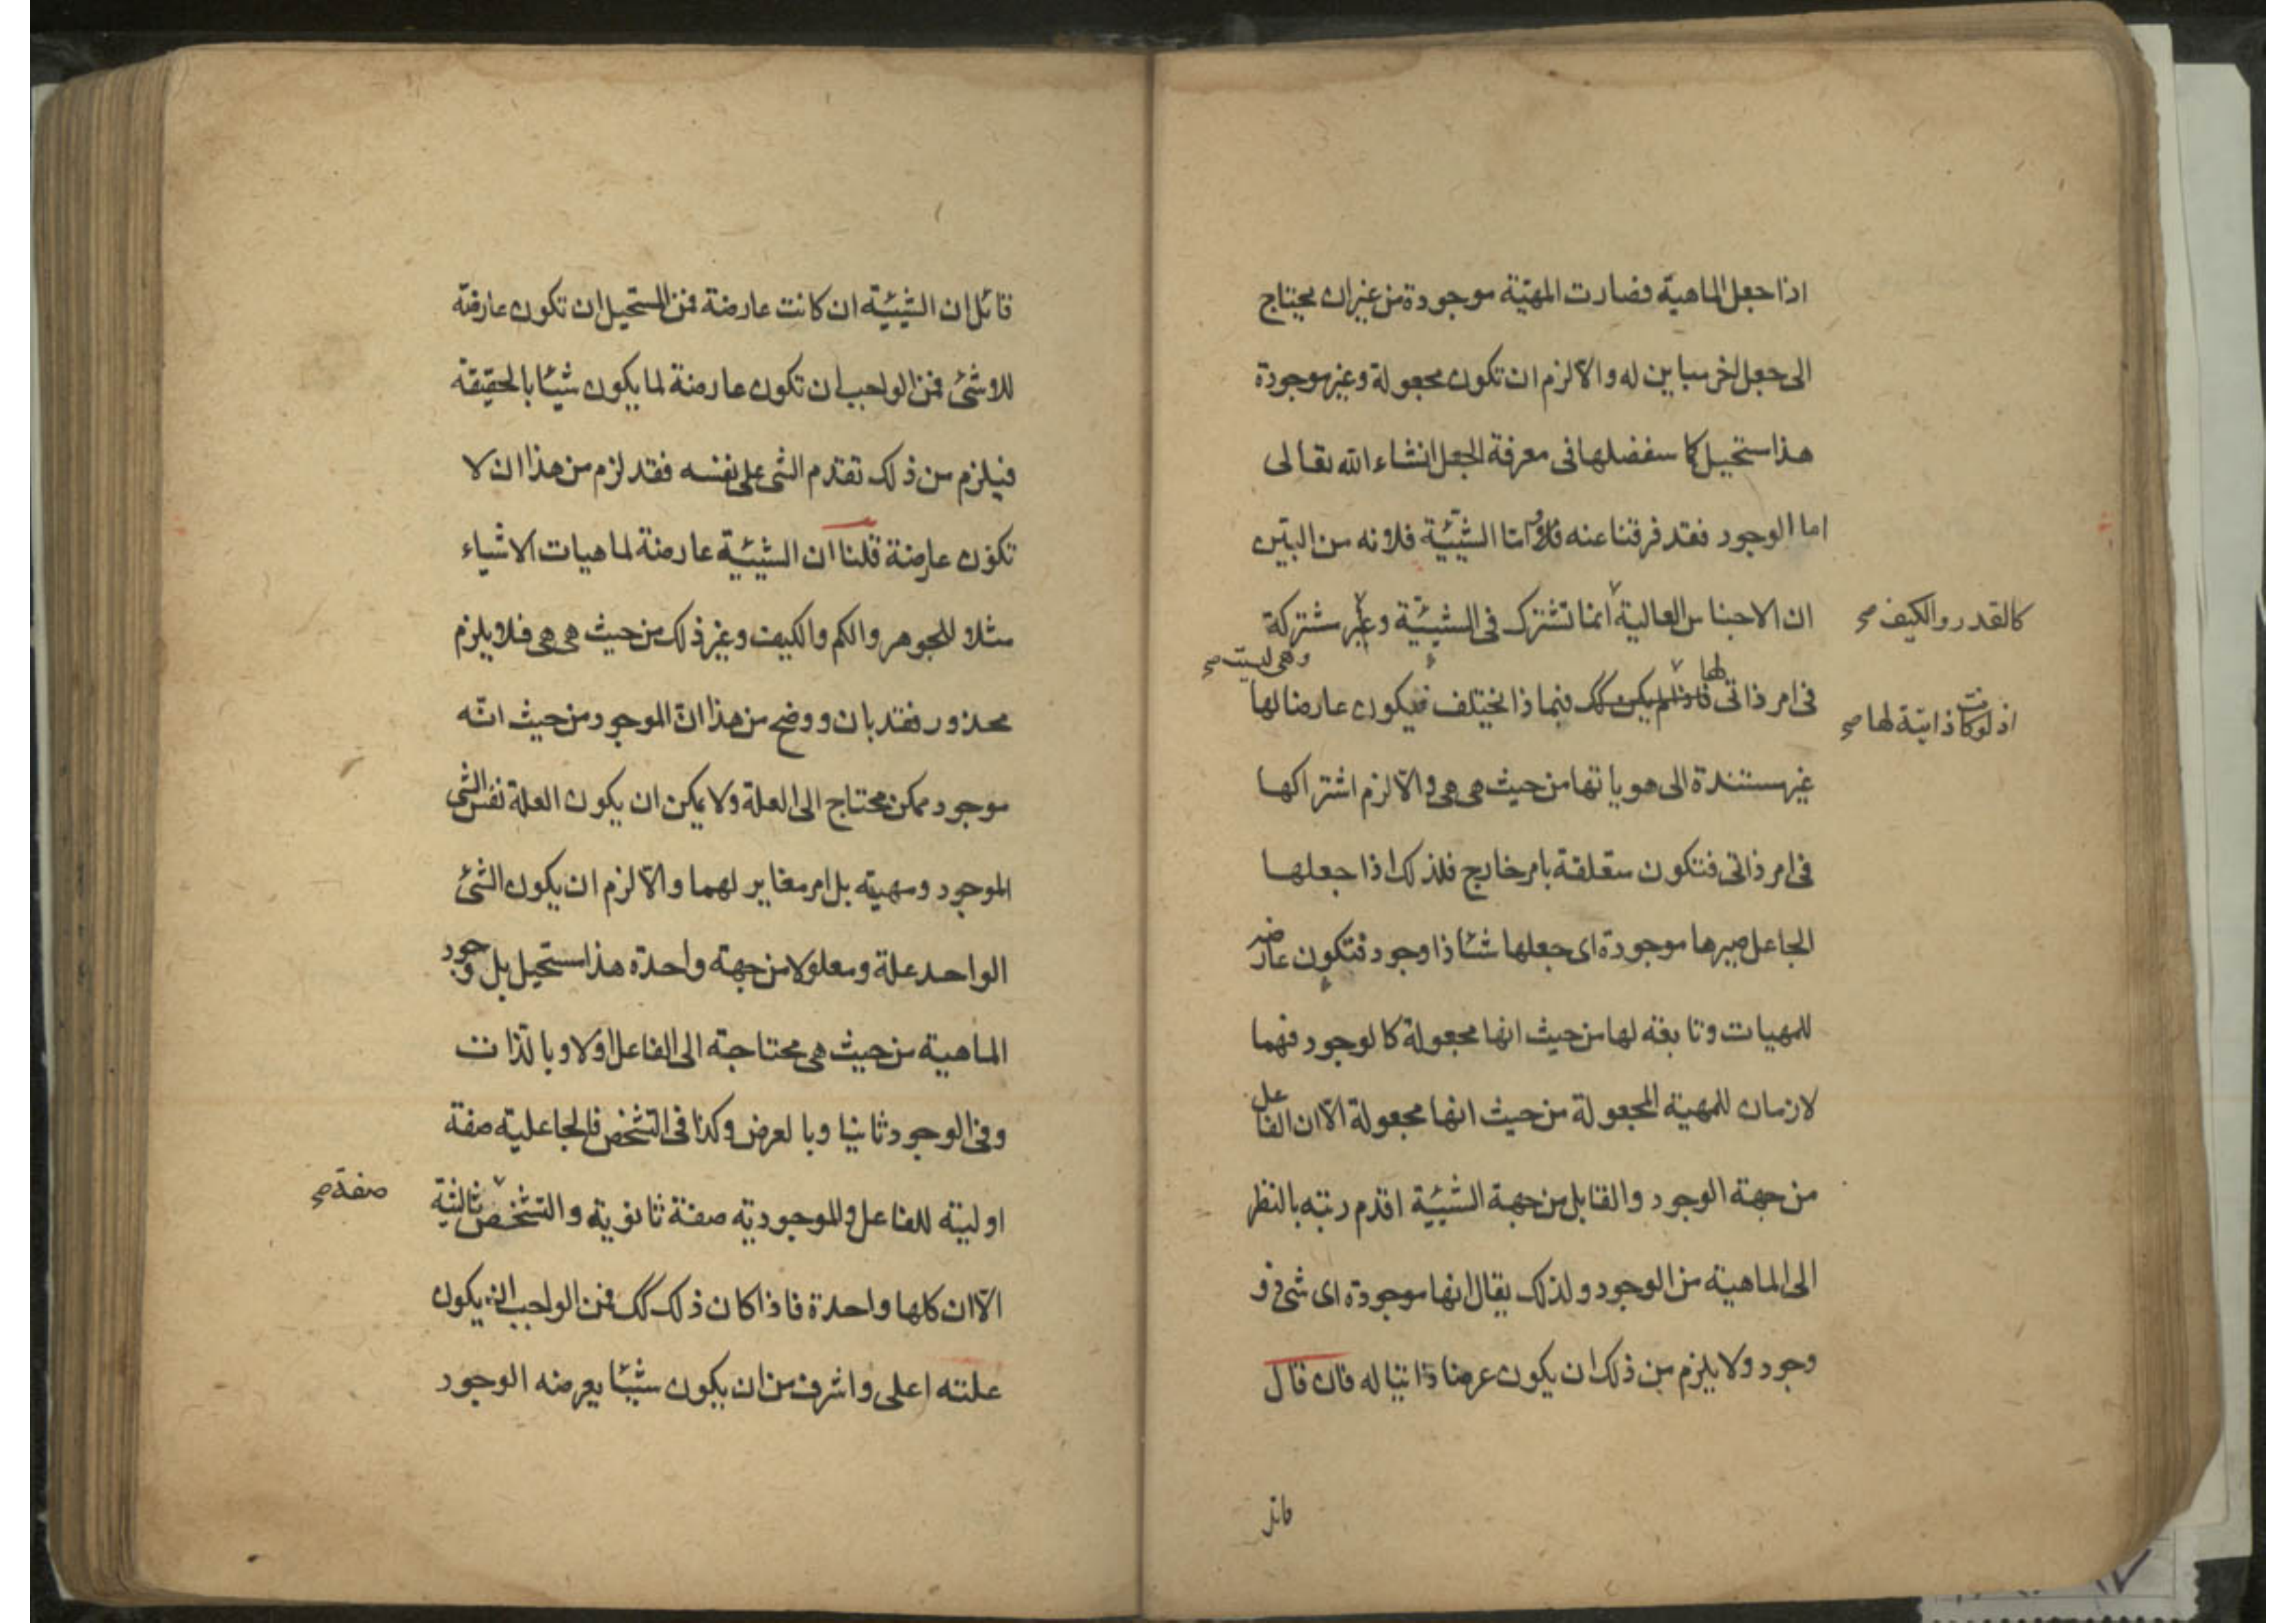 اذا جعل الماهية فصارت المهية موجودة من غير ان يحتاج
الى جعل اخر مباين له والا لزم ان تكون مجعولة وغير موجودة
هذا ستحيل كما سنفصلها فى معرفة الجعل انشاء الله تعالى
اما الوجود فقد فرقنا عنه واما الشيئية فلانه من البين
ان الاجناس العالية انما تشترك فى الشيئية وغير مشتركة
كالقدر والكيف صح
وهى ليست صح
فى امر ذاتى لها فاذا لم يكن كك فيما ذا يختلف فيكون عارضا لها
اذ لو كانت ذاتية لها صح
غير مستندة الى هوياتها من حيث هى هى والا لزم اشتراكها
فى امر ذاتى فتكون متعلقة بامر خارج فلذلك اذا جعلها
الجاعل صيرها موجودة اى جعلها شئا ذا وجود فتكون عارضه
للمهيات وتابعة لها من حيث انها مجعولة كالوجود فهما
لازمان للمهية المجعولة من حيث انها مجعولة الا ان الفاعل
من جهة الوجود والقابل من جهة الشيئية اقدم رتبه بالنظر
الى الماهية من الوجود ولذلك يقال انها موجودة اى شئ ذو
وجود ولا يلزم من ذلك ان يكون عرضا ذاتيا له فان قال
قائل
قائل ان الشيئية ان كانت عارضة فمن المستحيل ان تكون عارضة
للاشئ فمن الواجب ان تكون عارضة لما يكون شيئا بالحقيقة
فيلزم من ذلك تقدم الشئ على نفسه فقد لزم من هذا ان لا
تكون عارضة قلنا ان الشيئية عارضة لماهيات الاشياء
مثلا للجوهر والكم والكيف وغير ذلك من حيث هى هى فلا يلزم
محذور فقد بان ووضح من هذا ان الموجود من حيث انه
موجود ممكن محتاج الى العلة ولا يمكن ان يكون العلة نفس الشئ
الموجود ومهيته بل امر مغاير لهما والا لزم ان يكون الشئ
الواحد علة ومعلولا من جهة واحدة هذا مستحيل بل وجود
الماهية من حيث هى محتاجة الى الفاعل اولا وبالذات
وفى الوجود ثانيا وبالعرض وكذا فى التشخص فالجاعلية صفة
اولية للفاعل وللموجودية صفة ثانوية والتشخص ثالثية
صفة صح
الا ان كلها واحدة فاذا كان ذلك كك فمن الواجب ان يكون
علته اعلى واشرف من ان يكون شيئا يعرضه الوجود